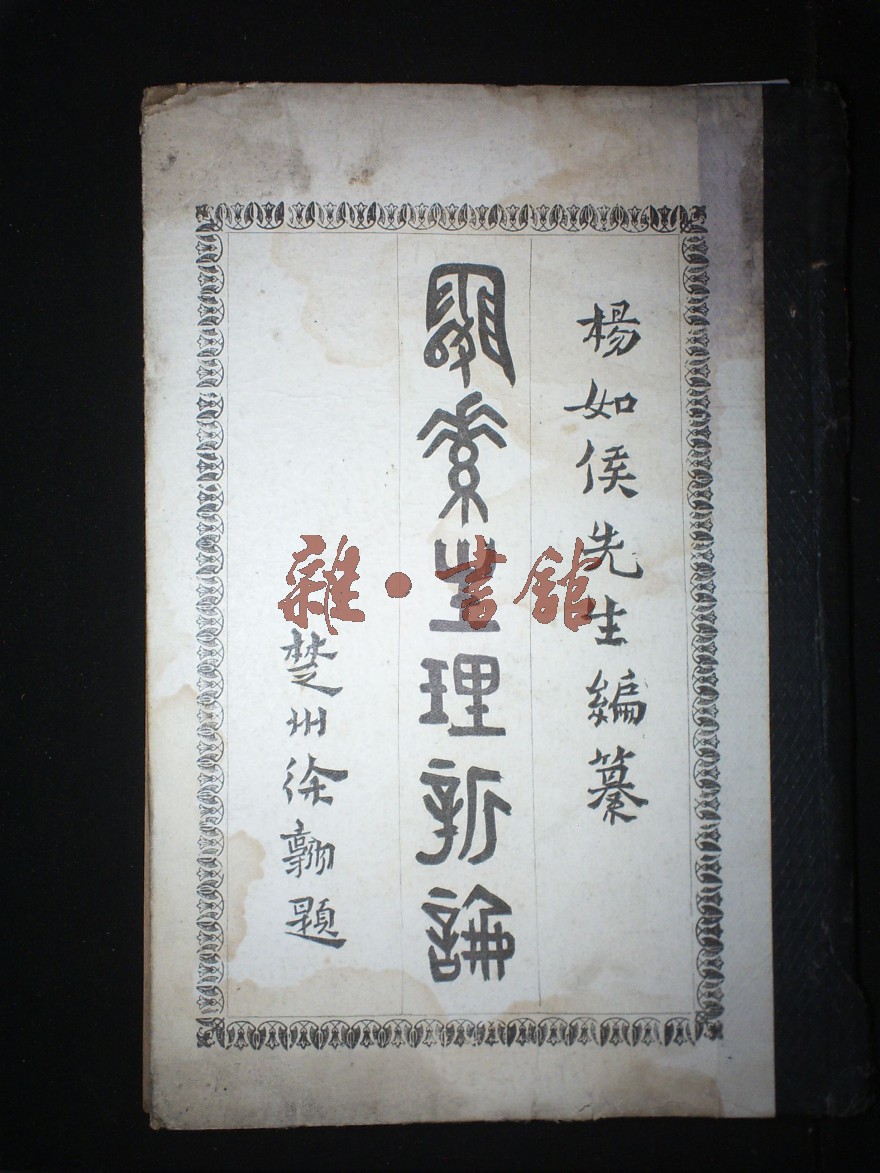 楊如侯先生編纂
靈素生理新論
楚州徐題
雜·書館